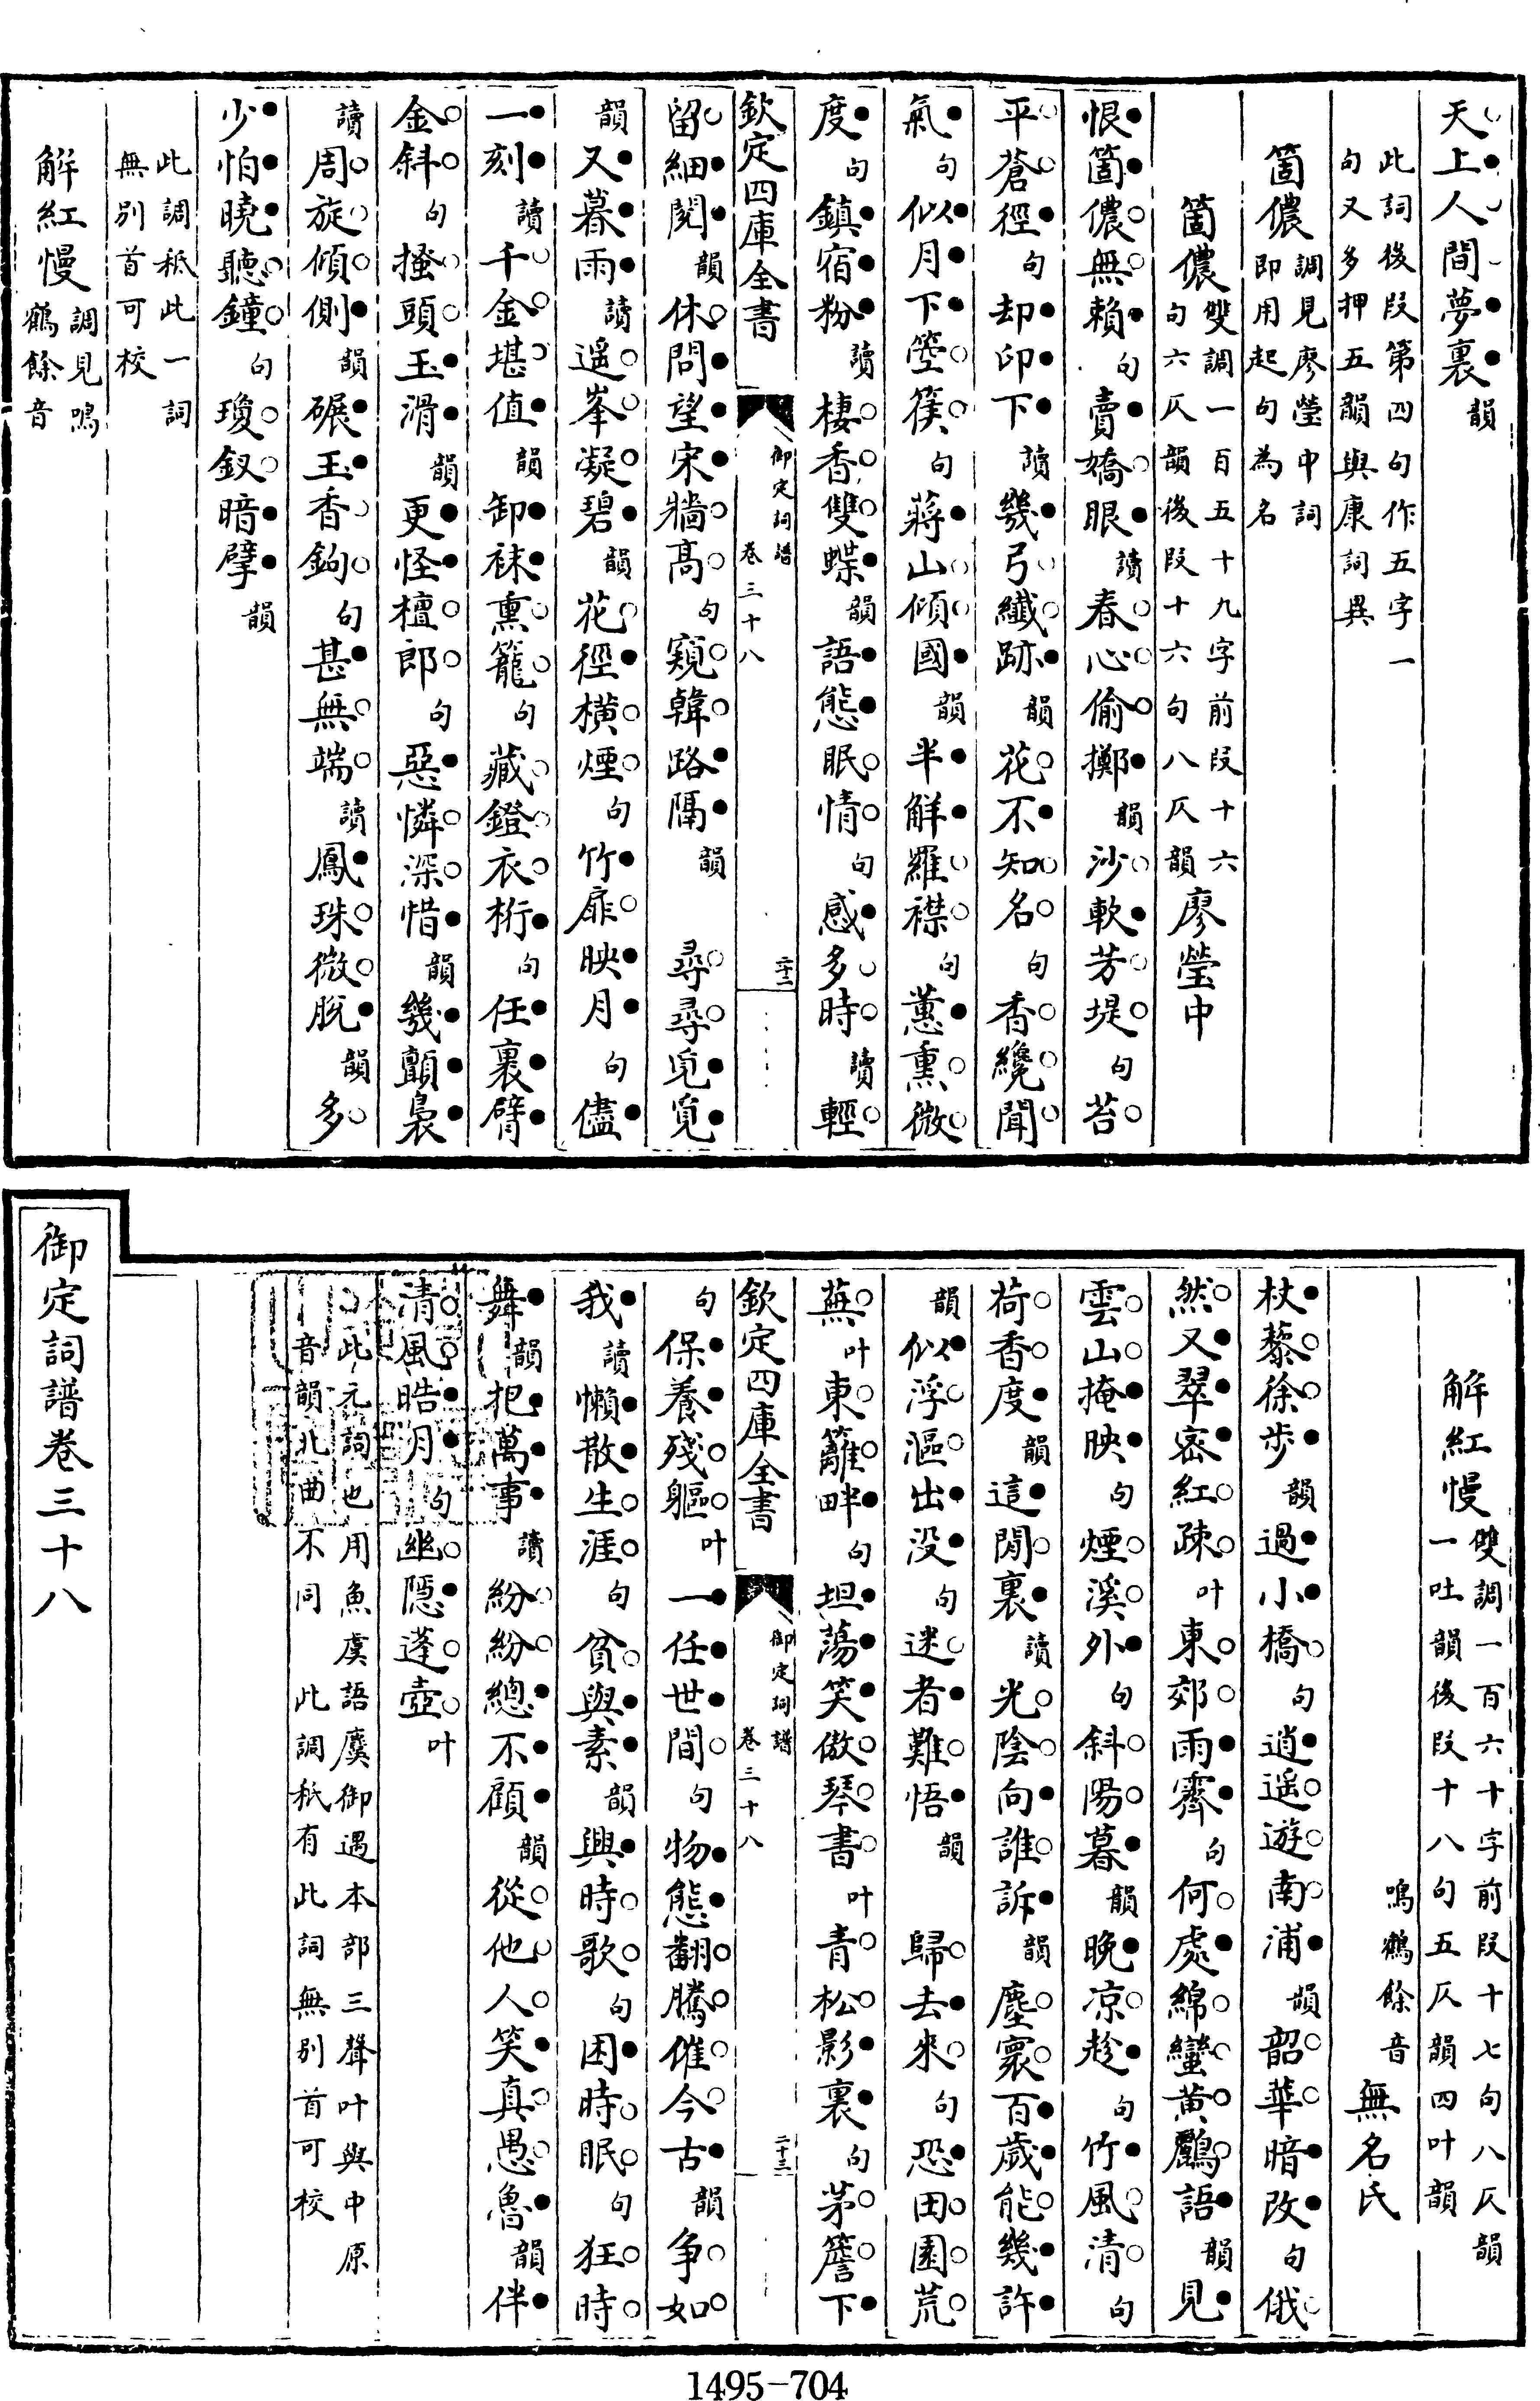 天上人間夢裏韻
此詞後段第四句作五字一
句又多押五韻與康詞異
箇儂調見廖瑩中詞
即用起句為名
箇儂雙調一百五十九字前段十六
句六仄韻後段十六句八仄韻廖瑩中
恨箇儂無賴句賣嬌眼讀春心偷擲韻沙軟芳堤句苔
平蒼徑句却印下讀幾弓纖跡韻花不知名句香纔聞
氣句似月下箜篌句蔣山傾國韻半解羅襟句蕙熏微
度句鎮宿粉讀棲香雙蝶韻語態眠情句感多時讀輕
欽定四庫全書
御定詞譜
卷三十八
二十二
留細閱韻休問望宋牆高句窺韓路隔韻尋尋覓覓
韻又暮雨讀遥峯凝碧韻花徑橫煙句竹扉映月句儘
一刻讀千金堪值韻卸袜熏籠句藏鐙衣桁句任裹臂
金斜句搔頭玉滑韻更怪檀郎句惡憐深惜韻幾顫裊
讀周旋傾側韻碾玉香鉤句甚無端讀鳳珠微脫韻多
少怕曉聽鐘句瓊釵暗擘韻
此調秖此一詞
無別首可校
解紅慢調見鳴
鶴餘音
解紅慢雙調一百六十字前段十七句八仄韻
一吐韻後段十八句五仄韻四叶韻
鳴鶴餘音無名氏
杖藜徐步韻過小橋句逍遥遊南浦韻韶華暗改句俄
然又翠密紅疎叶東郊雨霽句何處綿蠻黃鸝語韻見
雲山掩映句煙溪外句斜陽暮韻晚涼趁句竹風清句
荷香度韻這閒裏讀光陰向誰訴韻塵寰百歲能幾許
韻似浮漚出没句迷者難悟韻歸去來句恐田園荒
蕪叶東籬畔句坦蕩笑傲琴書叶青松影裏句茅簷下
欽定四庫全書
御定詞譜
卷三十八
二十三
句保養殘軀叶一任世間句物態翻騰催今古韻争如
我讀懶散生涯句貧與素韻興時歌句困時眠句狂時
舞韻把萬事讀紛紛總不顧韻從他人笑真愚魯韻伴
清風皓月句幽隱蓬壺叶
此元詞也用魚虞語麌御遇本部三聲叶與中原
音韻北曲不同此調秖有此詞無別首可校
御定詞譜卷三十八
1495-704